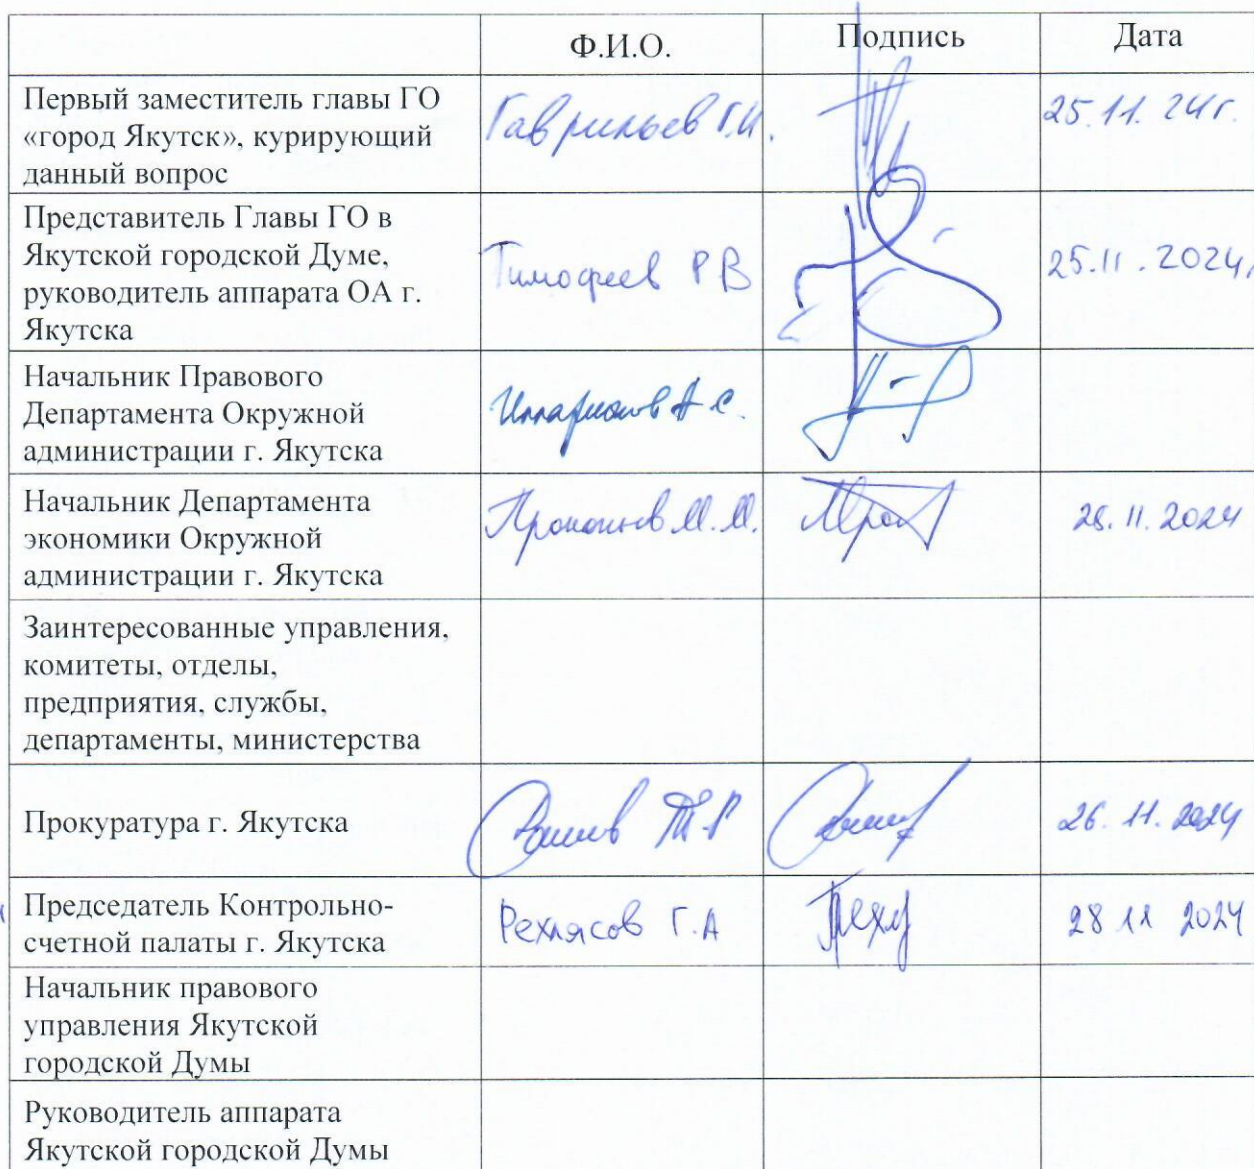 Ф.И.О. Подпись Дата
Первый заместитель главы ГО
«город Якутск», курирующий
данный вопрос
Гаврильев Г.И. 25.11.24г.
Представитель Главы ГО в
Якутской городской Думе,
руководитель аппарата ОА г.
Якутска
Тимофеев Р В 25.11.2024г
Начальник Правового
Департамента Окружной
администрации г. Якутска
Илларионов А С.
Начальник Департамента
экономики Окружной
администрации г. Якутска
Прокопьев М.М. .11.2024
Заинтересованные управления,
комитеты, отделы,
предприятия, службы,
департаменты, министерства
Прокуратура г. Якутска
26.11.2024
Председатель Контрольно-
счетной палаты г. Якутска
Рехлясов Г.А 28 11 2024
Начальник правового
управления Якутской
городской Думы
Руководитель аппарата
Якутской городской Думы